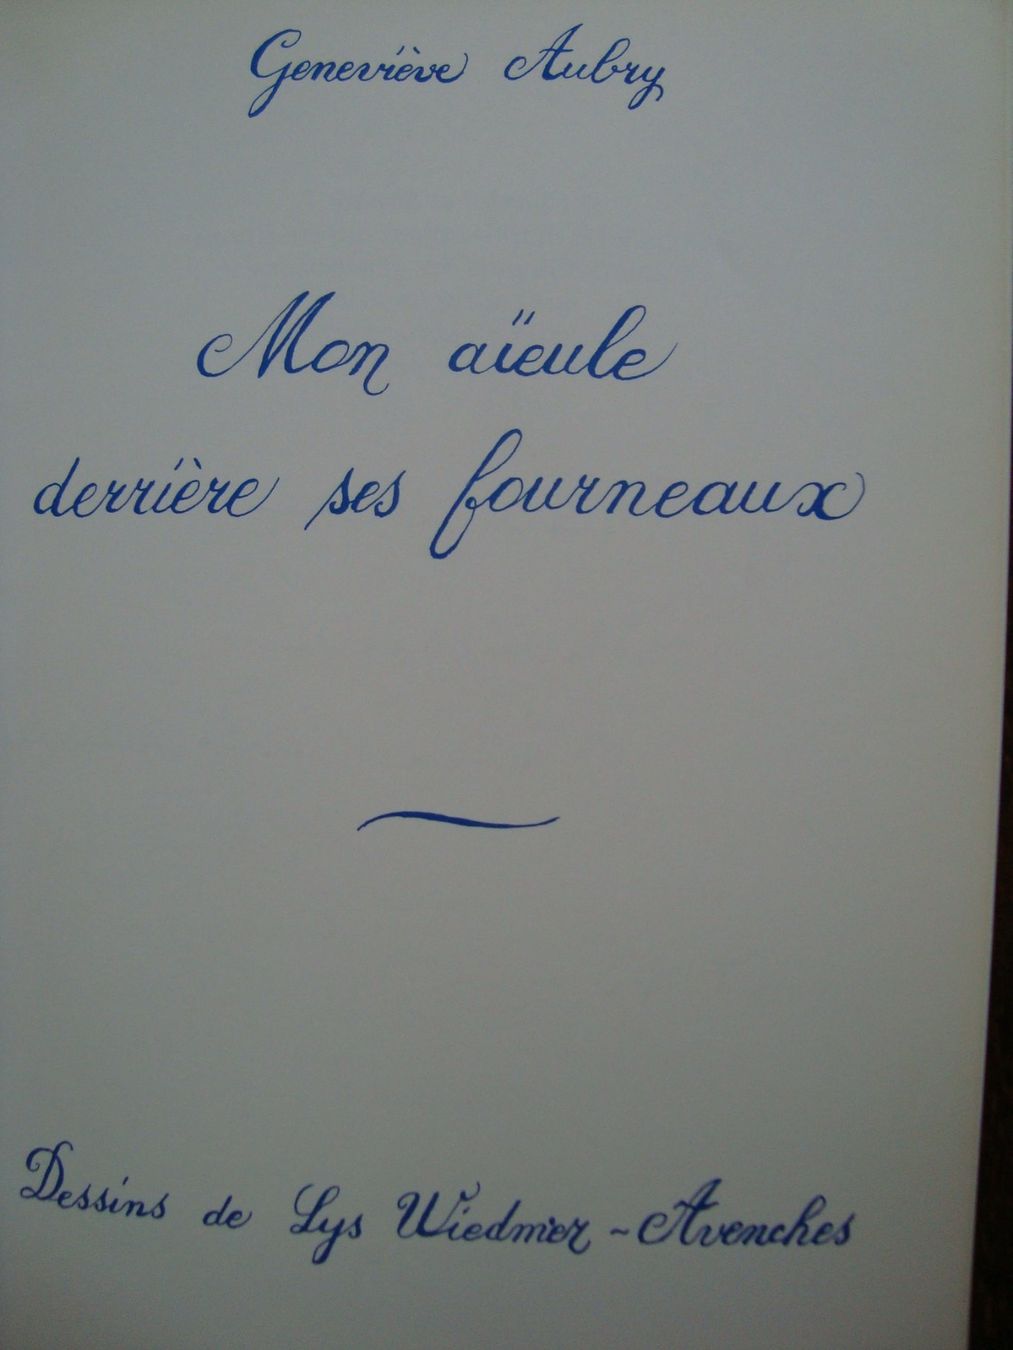 Geneviève Aubry
Mon aïeule
derrière ses fourneaux
Dessins de Lys Wiedmer - Avenches